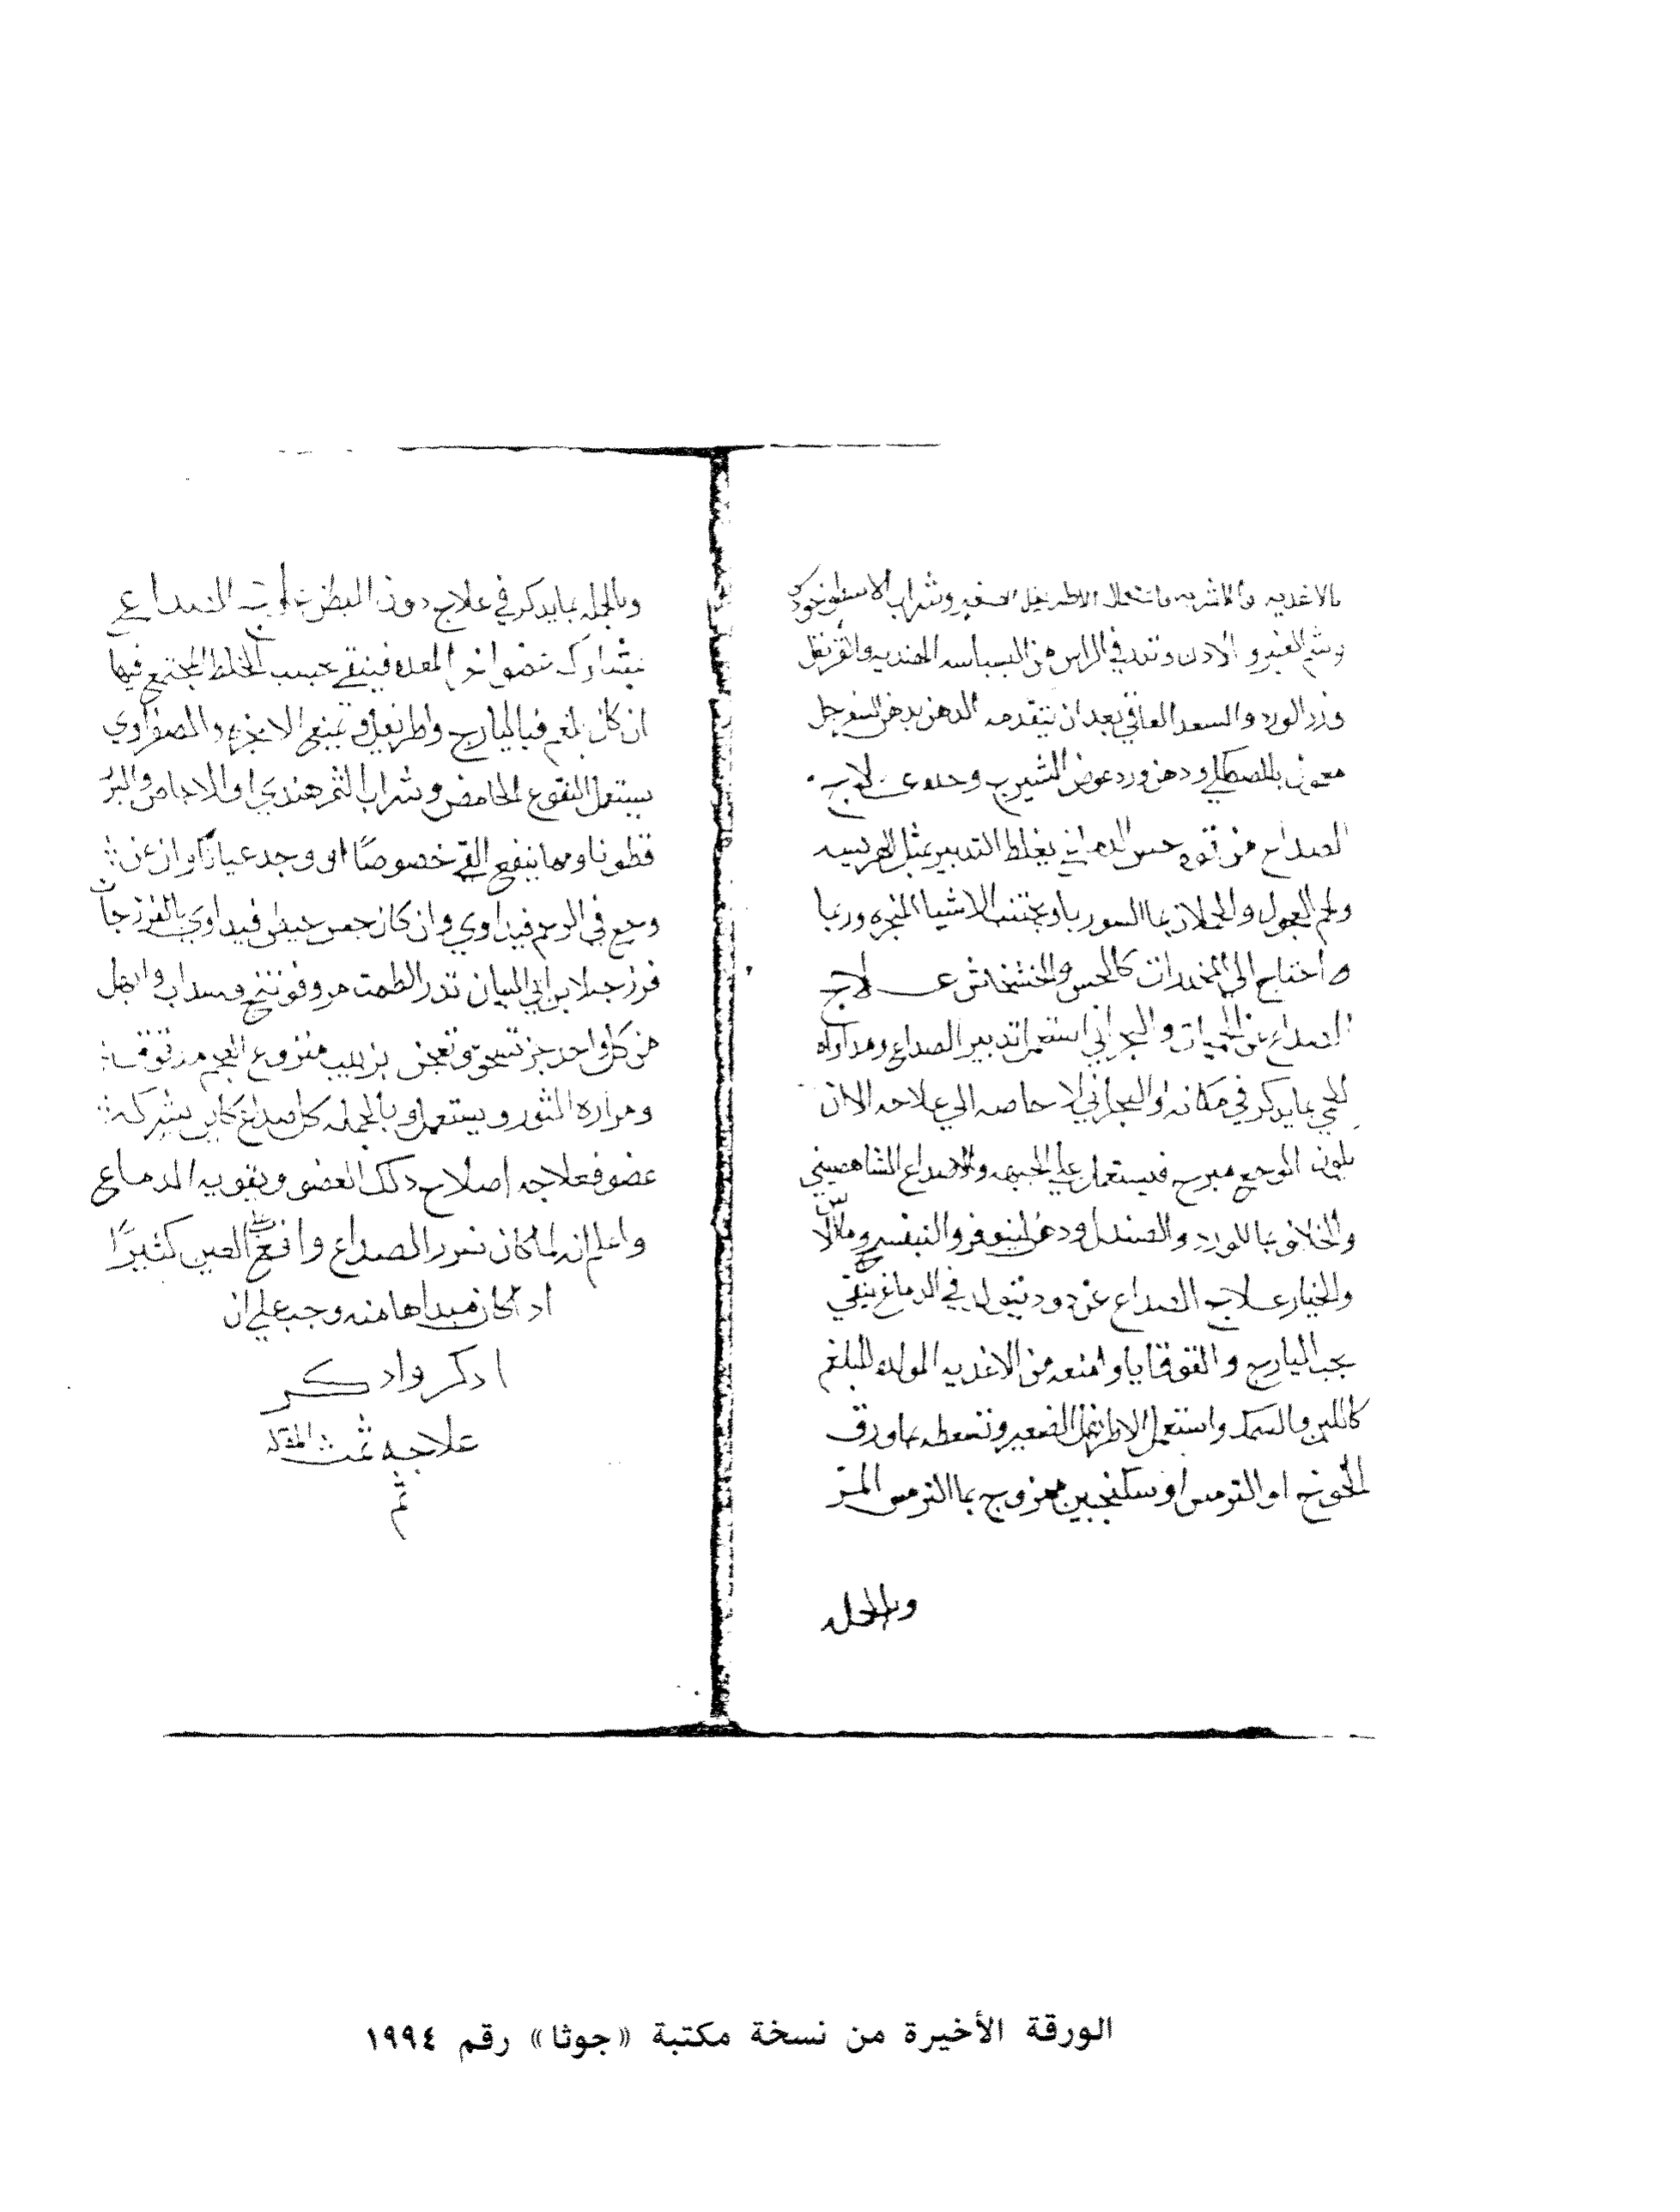 بالاغذيه والاشربه واستعمال الاطريفل الصغير وشراب الاسطوخودس
وشم العنبر و الادن وتدر في الراس من البسباسه الهنديه والقرنفل
وزر الورد والسعد العاقي بعد ان يتقدمه الدهن بدهن السفرجل
بالمصطكي ودهن ورد عوض الشيرج وحده علاج
الصداع من قوه حس الدماغ يغلظ التدبير بمثل الهريسه
ولحم العجول والحملان ويجتنب الاشيا المبخره وربما
احتاج الي المخدرات كالخس والخشخاش عــــلاج
الصداع عن الحميات و البحراني استعمل تدبير الصداع ومداواه
الحمي بما يذكر في مكانه والبحراني لا حاجه الي علاجه الا ان
يكون الوجع مبرح فيستعمل علي الجبهه والاصداغ الشاهصيني
والخلاف بما الورد والصندل ودهن اللينوفر والبنفسج وما الاس
والخيار عــلاج الصداع عن دود يتولد في الدماغ ينقي
بحب اليارج و القوقايا وامنعه من الاغديه المولده للبلغم
كاللبن والسمك واستعمل الاطريفل الصغير وتسعطه بما ورق
الخوخ او الترمس او سكنجبين ممزوج بما الترمس المـر
وبالجمله
وبالجمله بما يدكر في علاج دود البطن علاج الصداع
بمشاركه عضو اخر المعده فينقي بحسب الخلط المجتمع فيها
ان كان بلغم فباليارج واطريفل و يمنع الابخره والصفراوي
يستعمل النقوع الحامض وشراب التمر هندي او الاجاص والبزر
قطونا ومما ينفع القي خصوصا ان وجد غيانا وان عن
وجع في الرحم فيداوي وان كان حبس حيض فيداوي بالفرزجات
فرزجه لابن ابي البيان تدر الطمث مر وفوتنج وسداب وابهل
من كل واحد جز تسحق وتعجن بزبيب منزوع العجم
ومراره الثور ويستعمل وبالجمله كل صداع كاين بشركه
عضو فعلاجه اصلاح دلك العضو وتقويه الدماغ
واعلم انه لما كان ضرر الصداع وافع بالعين كثيرًا
اد كان مبداها منه وجب علي ان
ادكر واد كــر
علاجه تمت المقاله
تم
الورقة الأخيرة من نسخة مكتبة «جوثا» رقم ١٩٩٤